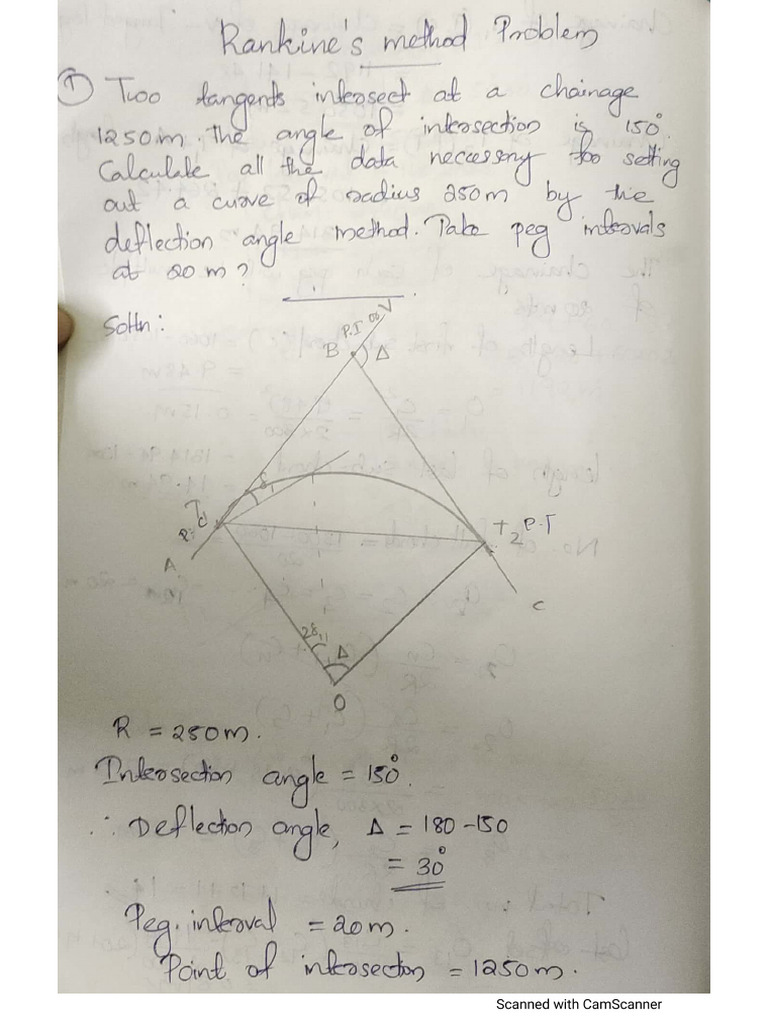 Rankine's method Problem
① Two tangents intersect at a chainage
1250m, the angle of intersection is 150°.
Calculate all the data necessary for setting
out a curve of radius 250m by the
deflection angle method. Take peg intervals
at 20 m?
Soltn:
P.I
B Δ
δ₁
T₁
T₂ P.T
A
C
2δ₁
Δ
O
R = 250m.
Intersection angle = 150°.
∴ Deflection angle, Δ = 180 - 150
= 30°
Peg. interval = 20m.
Point of intersection = 1250m.
Scanned with CamScanner